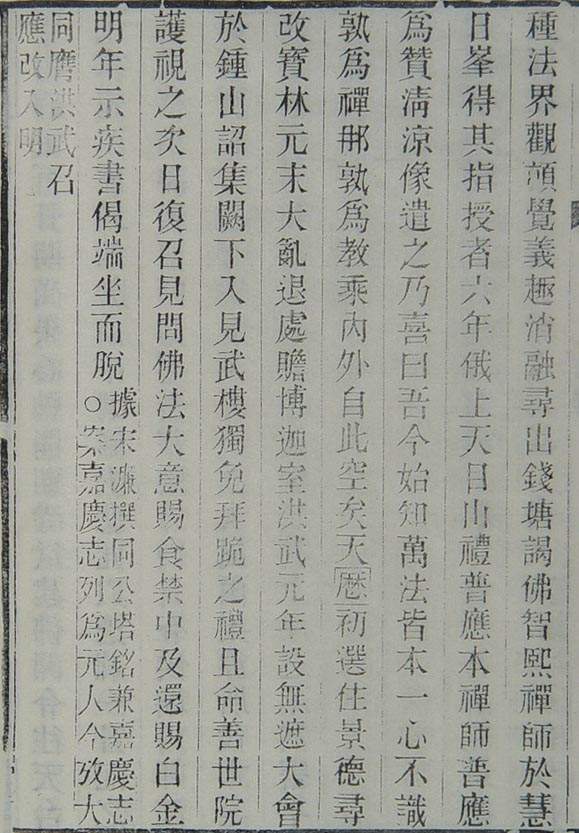 種法界觀頓覺義趣消融尋出錢塘謁佛智熙禪師於慧
日峯得其指授者六年俄上天目山禮普應本禪師普應
為贊淸涼像遺之乃喜曰吾今始知萬法皆本一心不識
孰為禪那孰為教乘內外自此空矣天暦初選住景德尋
改寶林元末大亂退處贍博迦室洪武元年設無遮大會
於鍾山詔集闕下入見武樓獨免拜跪之禮且命善世院
護視之次日復召見問佛法大意賜食禁中及還賜白金
明年示疾書偈端坐而脫
據宋濂撰同公塔銘兼嘉慶志
○案嘉慶志列為元人今攷大
同膺洪武召
應改入明